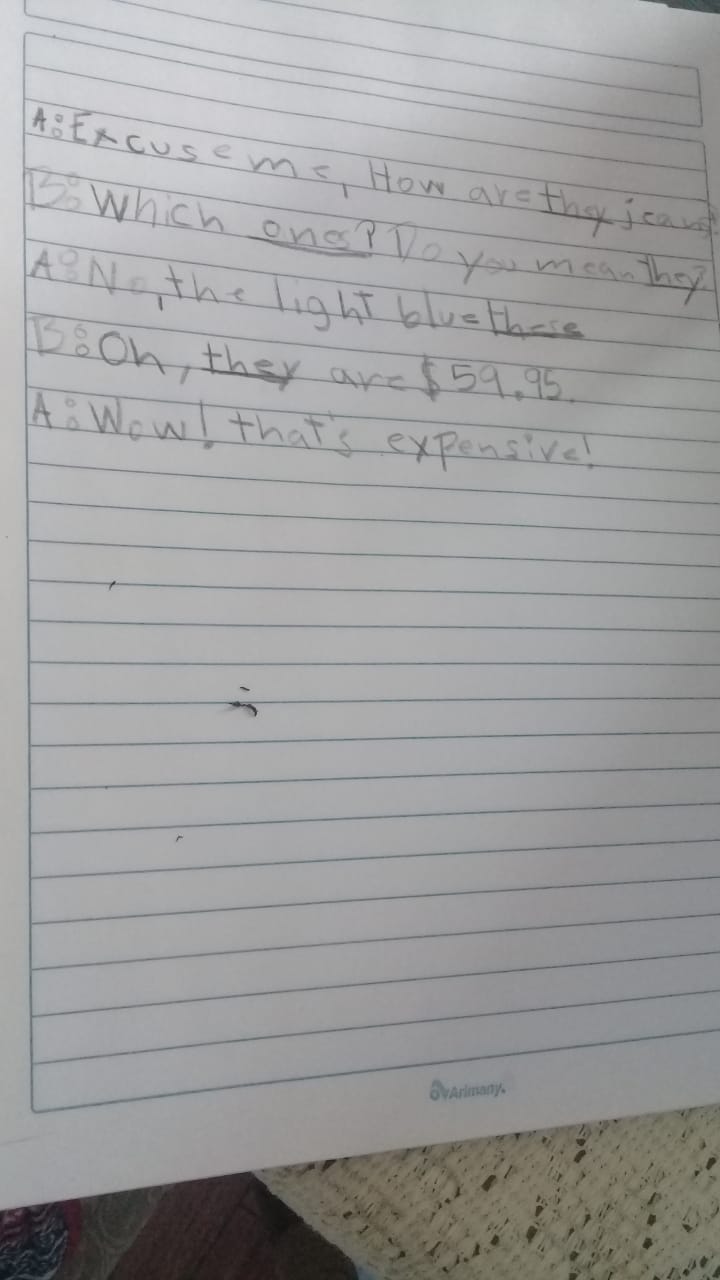 A: Excuse me, How are they jeans?
B: Which ones? Do you mean they?
A: No, the light blue these
B: Oh, they are $59.95.
A: Wow! that's expensive!
Arimany.